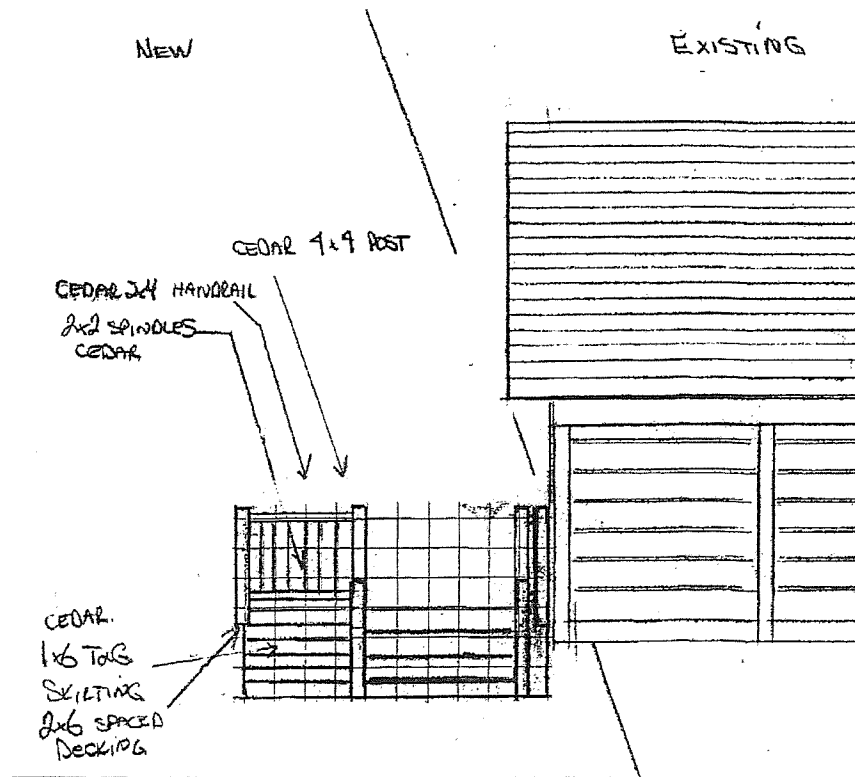 NEW
EXISTING
CEDAR 4x4 POST
CEDAR 2x4 HANDRAIL
2x2 SPINDLES
CEDAR
CEDAR.
1x6 T&G
SKILTING
2x6 SPACED
DECKING